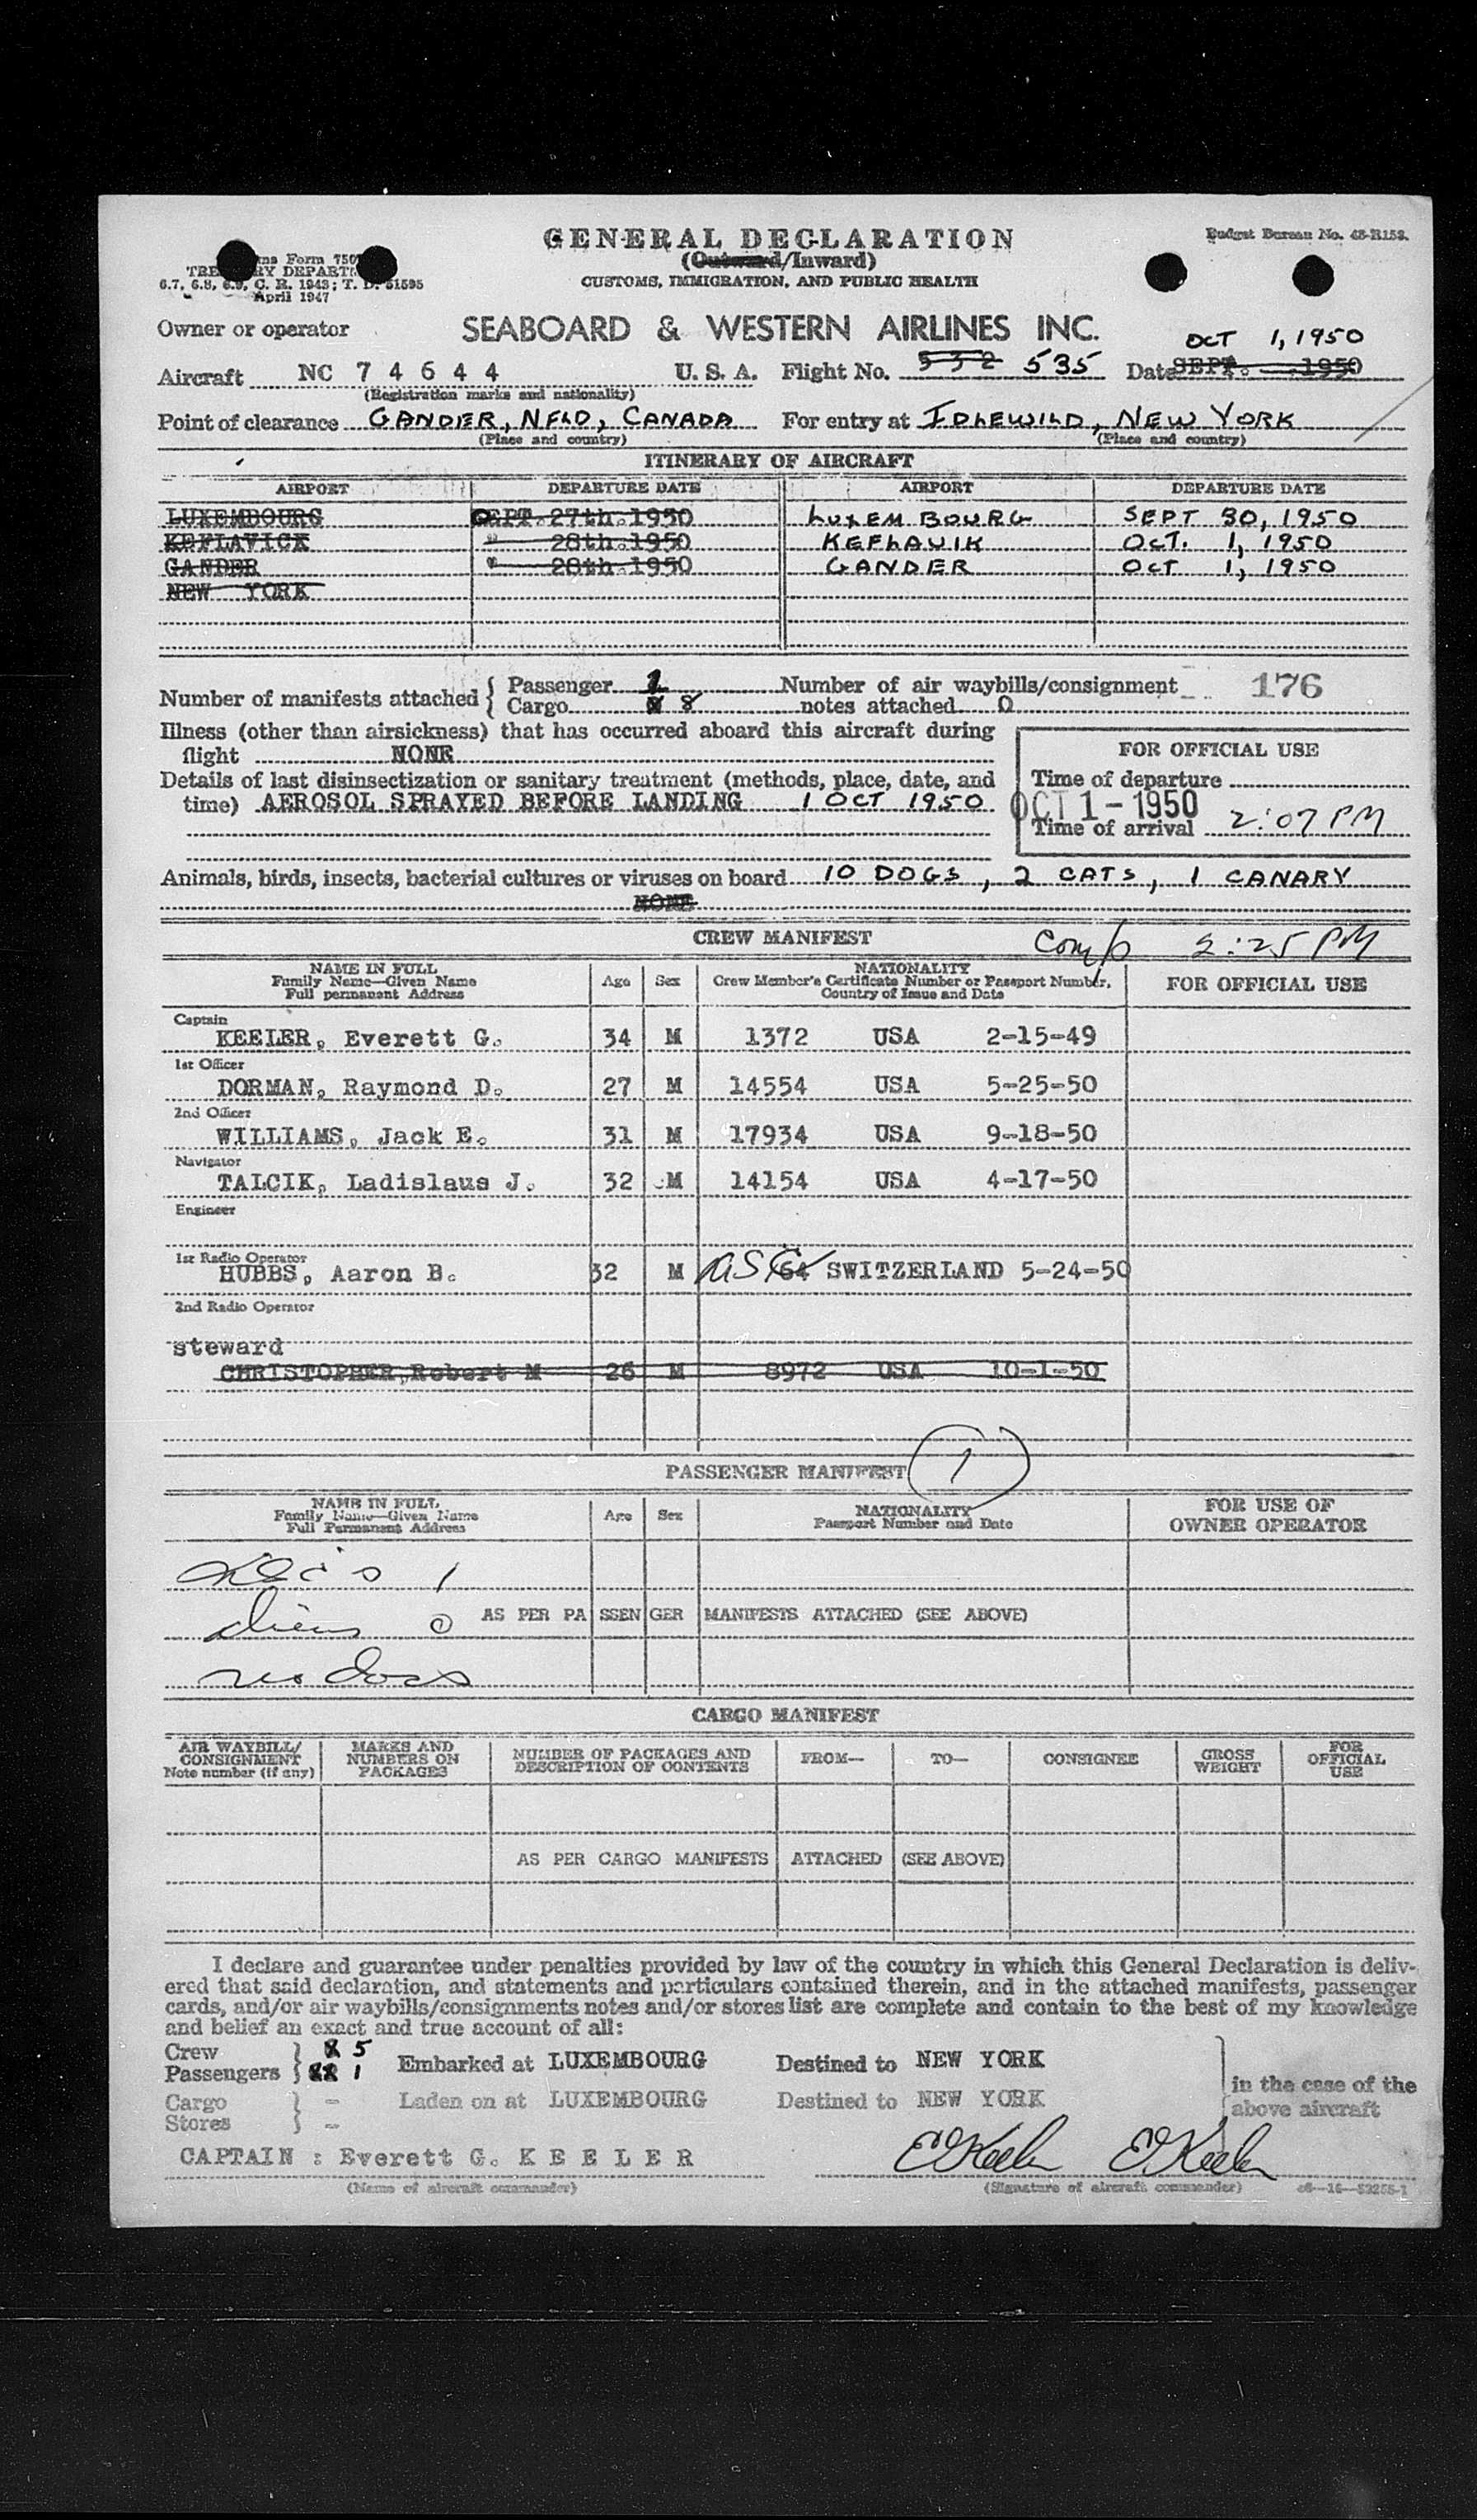 GENERAL DECLARATION
Budget Bureau No. 48-R153.
(Outward/Inward)
TREASURY DEPARTMENT
CUSTOMS, IMMIGRATION, AND PUBLIC HEALTH
6.7, 6.8, 6.9, C. R. 1943; T. D. 51595
April 1947
Owner or operator SEABOARD & WESTERN AIRLINES INC.
OCT 1, 1950
Aircraft NC 74644 U. S. A. Flight No. 532 535 Date SEPT. 1950
(Registration marks and nationality)
Point of clearance GANDER, NFLD, CANADA For entry at IDLEWILD, NEW YORK
(Place and country) (Place and country)
ITINERARY OF AIRCRAFT
AIRPORT DEPARTURE DATE AIRPORT DEPARTURE DATE
LUXEMBOURG SEPT. 27th. 1950 LUXEMBOURG SEPT 30, 1950
KEFLAVICK " 28th. 1950 KEFLAVIK OCT. 1, 1950
GANDER " 28th. 1950 GANDER OCT 1, 1950
NEW YORK
Number of manifests attached { Passenger 1 Number of air waybills/consignment 176
Cargo 8 notes attached 0
Illness (other than airsickness) that has occurred aboard this aircraft during
flight NONE
FOR OFFICIAL USE
Details of last disinsectization or sanitary treatment (methods, place, date, and
Time of departure
time) AEROSOL SPRAYED BEFORE LANDING 1 OCT 1950
OCT 1 - 1950
Time of arrival 2:07 PM
Animals, birds, insects, bacterial cultures or viruses on board 10 DOGS, 2 CATS, 1 CANARY
NONE
CREW MANIFEST Comp 2:25 PM
NAME IN FULL
Family Name—Given Name
Full permanent Address
Age Sex
NATIONALITY
Crew Member's Certificate Number or Passport Number,
Country of Issue and Date
FOR OFFICIAL USE
Captain
KEELER, Everett G. 34 M 1372 USA 2-15-49
1st Officer
DORMAN, Raymond D. 27 M 14554 USA 5-25-50
2nd Officer
WILLIAMS, Jack E. 31 M 17934 USA 9-18-50
Navigator
TALCIK, Ladislaus J. 32 M 14154 USA 4-17-50
Engineer
1st Radio Operator
HUBBS, Aaron B. 32 M 64 SWITZERLAND 5-24-50
2nd Radio Operator
steward
CHRISTOPHER, Robert M 26 M 8972 USA 10-1-50
PASSENGER MANIFEST 1
NAME IN FULL
Family Name—Given Name
Full Permanent Address
Age Sex
NATIONALITY
Passport Number and Date
FOR USE OF
OWNER OPERATOR
1
aliens 0 AS PER PASSENGER MANIFESTS ATTACHED (SEE ABOVE)
no docs
CARGO MANIFEST
AIR WAYBILL/
CONSIGNMENT
Note number (if any)
MARKS AND
NUMBERS ON
PACKAGES
NUMBER OF PACKAGES AND
DESCRIPTION OF CONTENTS
FROM— TO— CONSIGNEE
GROSS
WEIGHT
FOR
OFFICIAL
USE
AS PER CARGO MANIFESTS ATTACHED (SEE ABOVE)
I declare and guarantee under penalties provided by law of the country in which this General Declaration is deliv-
ered that said declaration, and statements and particulars contained therein, and in the attached manifests, passenger
cards, and/or air waybills/consignments notes and/or stores list are complete and contain to the best of my knowledge
and belief an exact and true account of all:
Crew 5
Passengers 1 Embarked at LUXEMBOURG Destined to NEW YORK
in the case of the
above aircraft
Cargo -
Laden on at LUXEMBOURG Destined to NEW YORK
Stores -
CAPTAIN : Everett G. KEELER EGKeeler EGKeeler
(Name of aircraft commander) (Signature of aircraft commander)